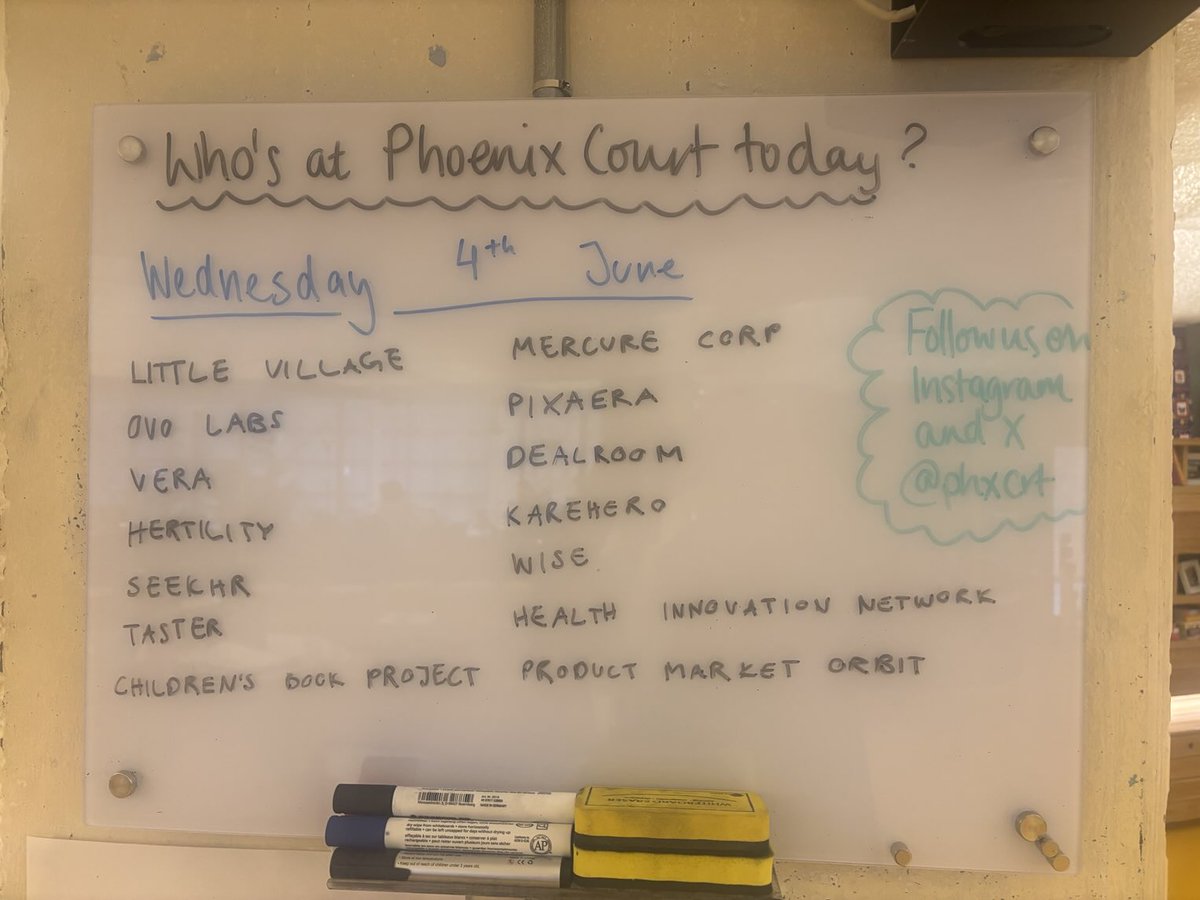 Who's at Phoenix Court today?
Wednesday 4th June
LITTLE VILLAGE
OVO LABS
VERA
HERTILITY
SEEKHR
TASTER
CHILDREN'S BOOK PROJECT
MERCURE CORP
PIXAERA
DEALROOM
KAREHERO
WISE
HEALTH INNOVATION NETWORK
PRODUCT MARKET ORBIT
Follow us on
Instagram
and X
@phxcrt
WHITEBOARD ERASER